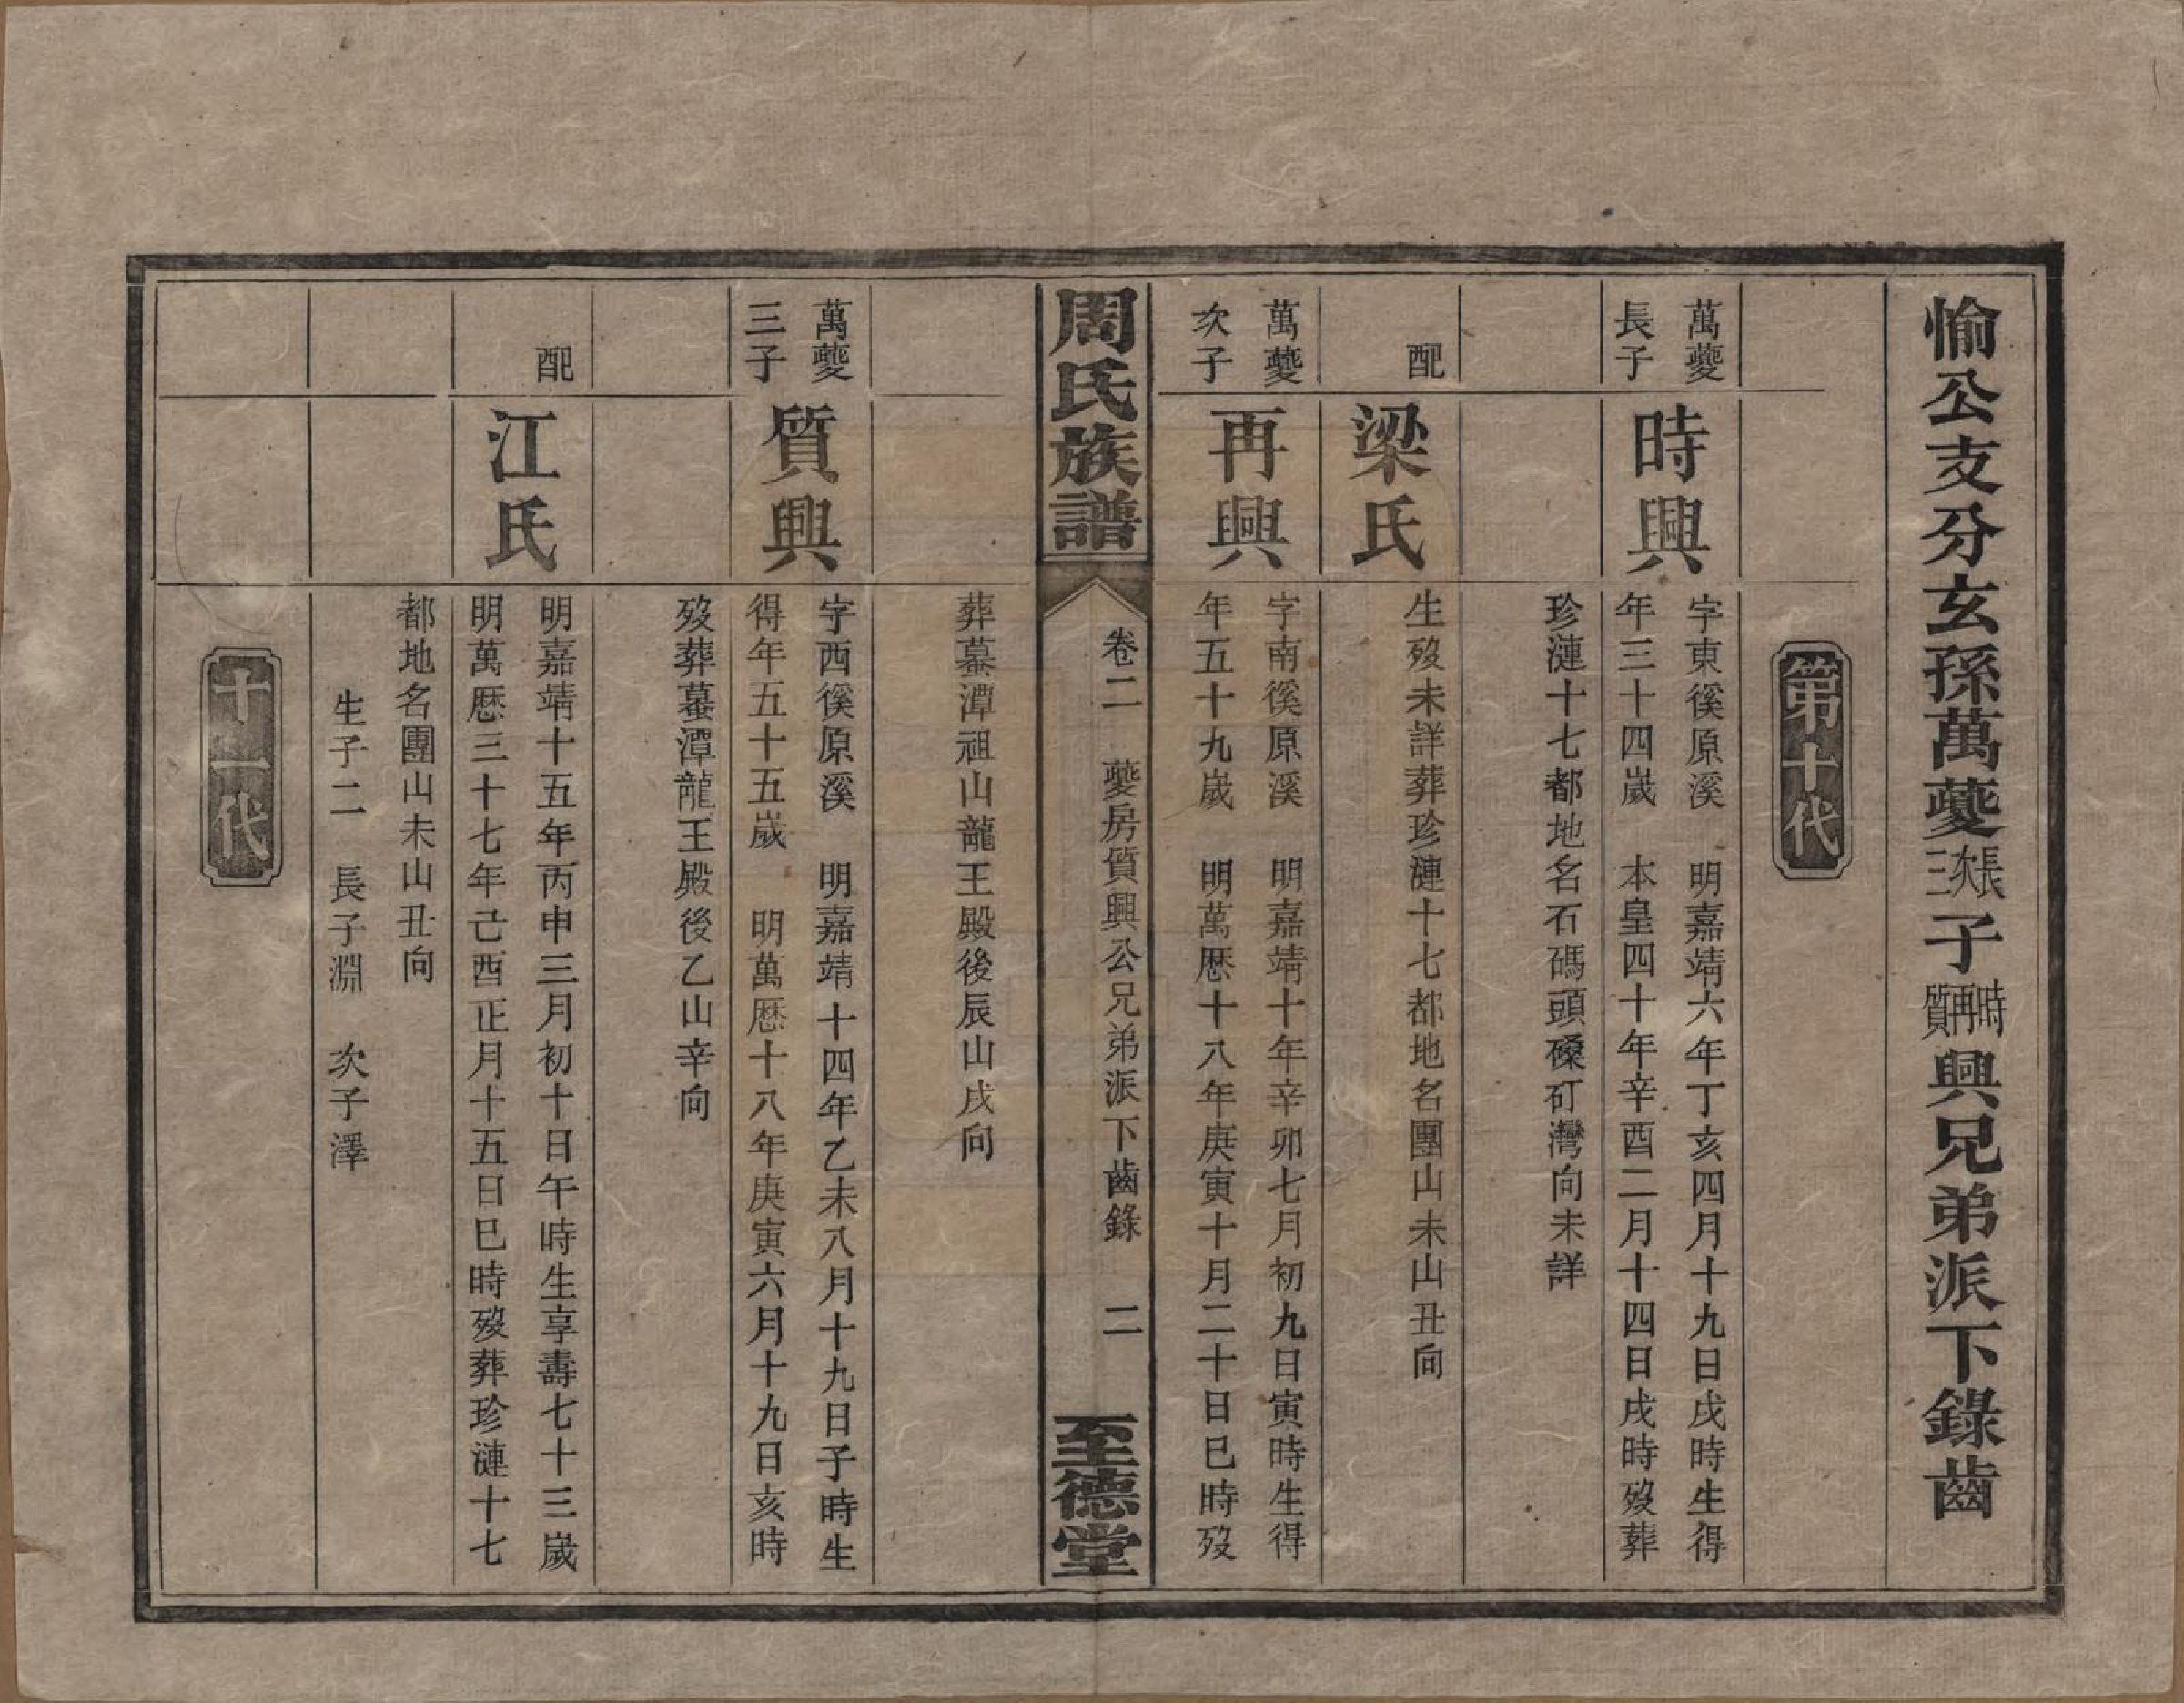 愉公支分玄孫萬䕫長次三子時再質興兄弟派下錄齒
第十代
萬䕫
長子
時興
字東徯原溪　明嘉靖六年丁亥四月十九日戌時生得
年三十四歲　本皇四十年辛酉二月十四日戌時歿葬
珍漣十七都地名石碼頭磉矴灣向未詳
配
梁氏
生歿未詳葬珍漣十七都地名團山未山丑向
萬䕫
次子
再興
字南徯原溪　明嘉靖十年辛卯七月初九日寅時生得
年五十九歲　明萬歷十八年庚寅十月二十日巳時歿
周氏族譜
卷二　䕫房質興公兄弟派下齒錄　二
至德堂
葬蟇潭祖山龍王殿後辰山戌向
萬䕫
三子
質興
字西徯原溪　明嘉靖十四年乙未八月十九日子時生
得年五十五歲　明萬歷十八年庚寅六月十九日亥時
歿葬蟇潭龍王殿後乙山辛向
配
江氏
明嘉靖十五年丙申三月初十日午時生享壽七十三歲
明萬歷三十七年己酉正月十五日巳時歿葬珍漣十七
都地名團山未山丑向
生子二　長子淵　次子澤
十一代